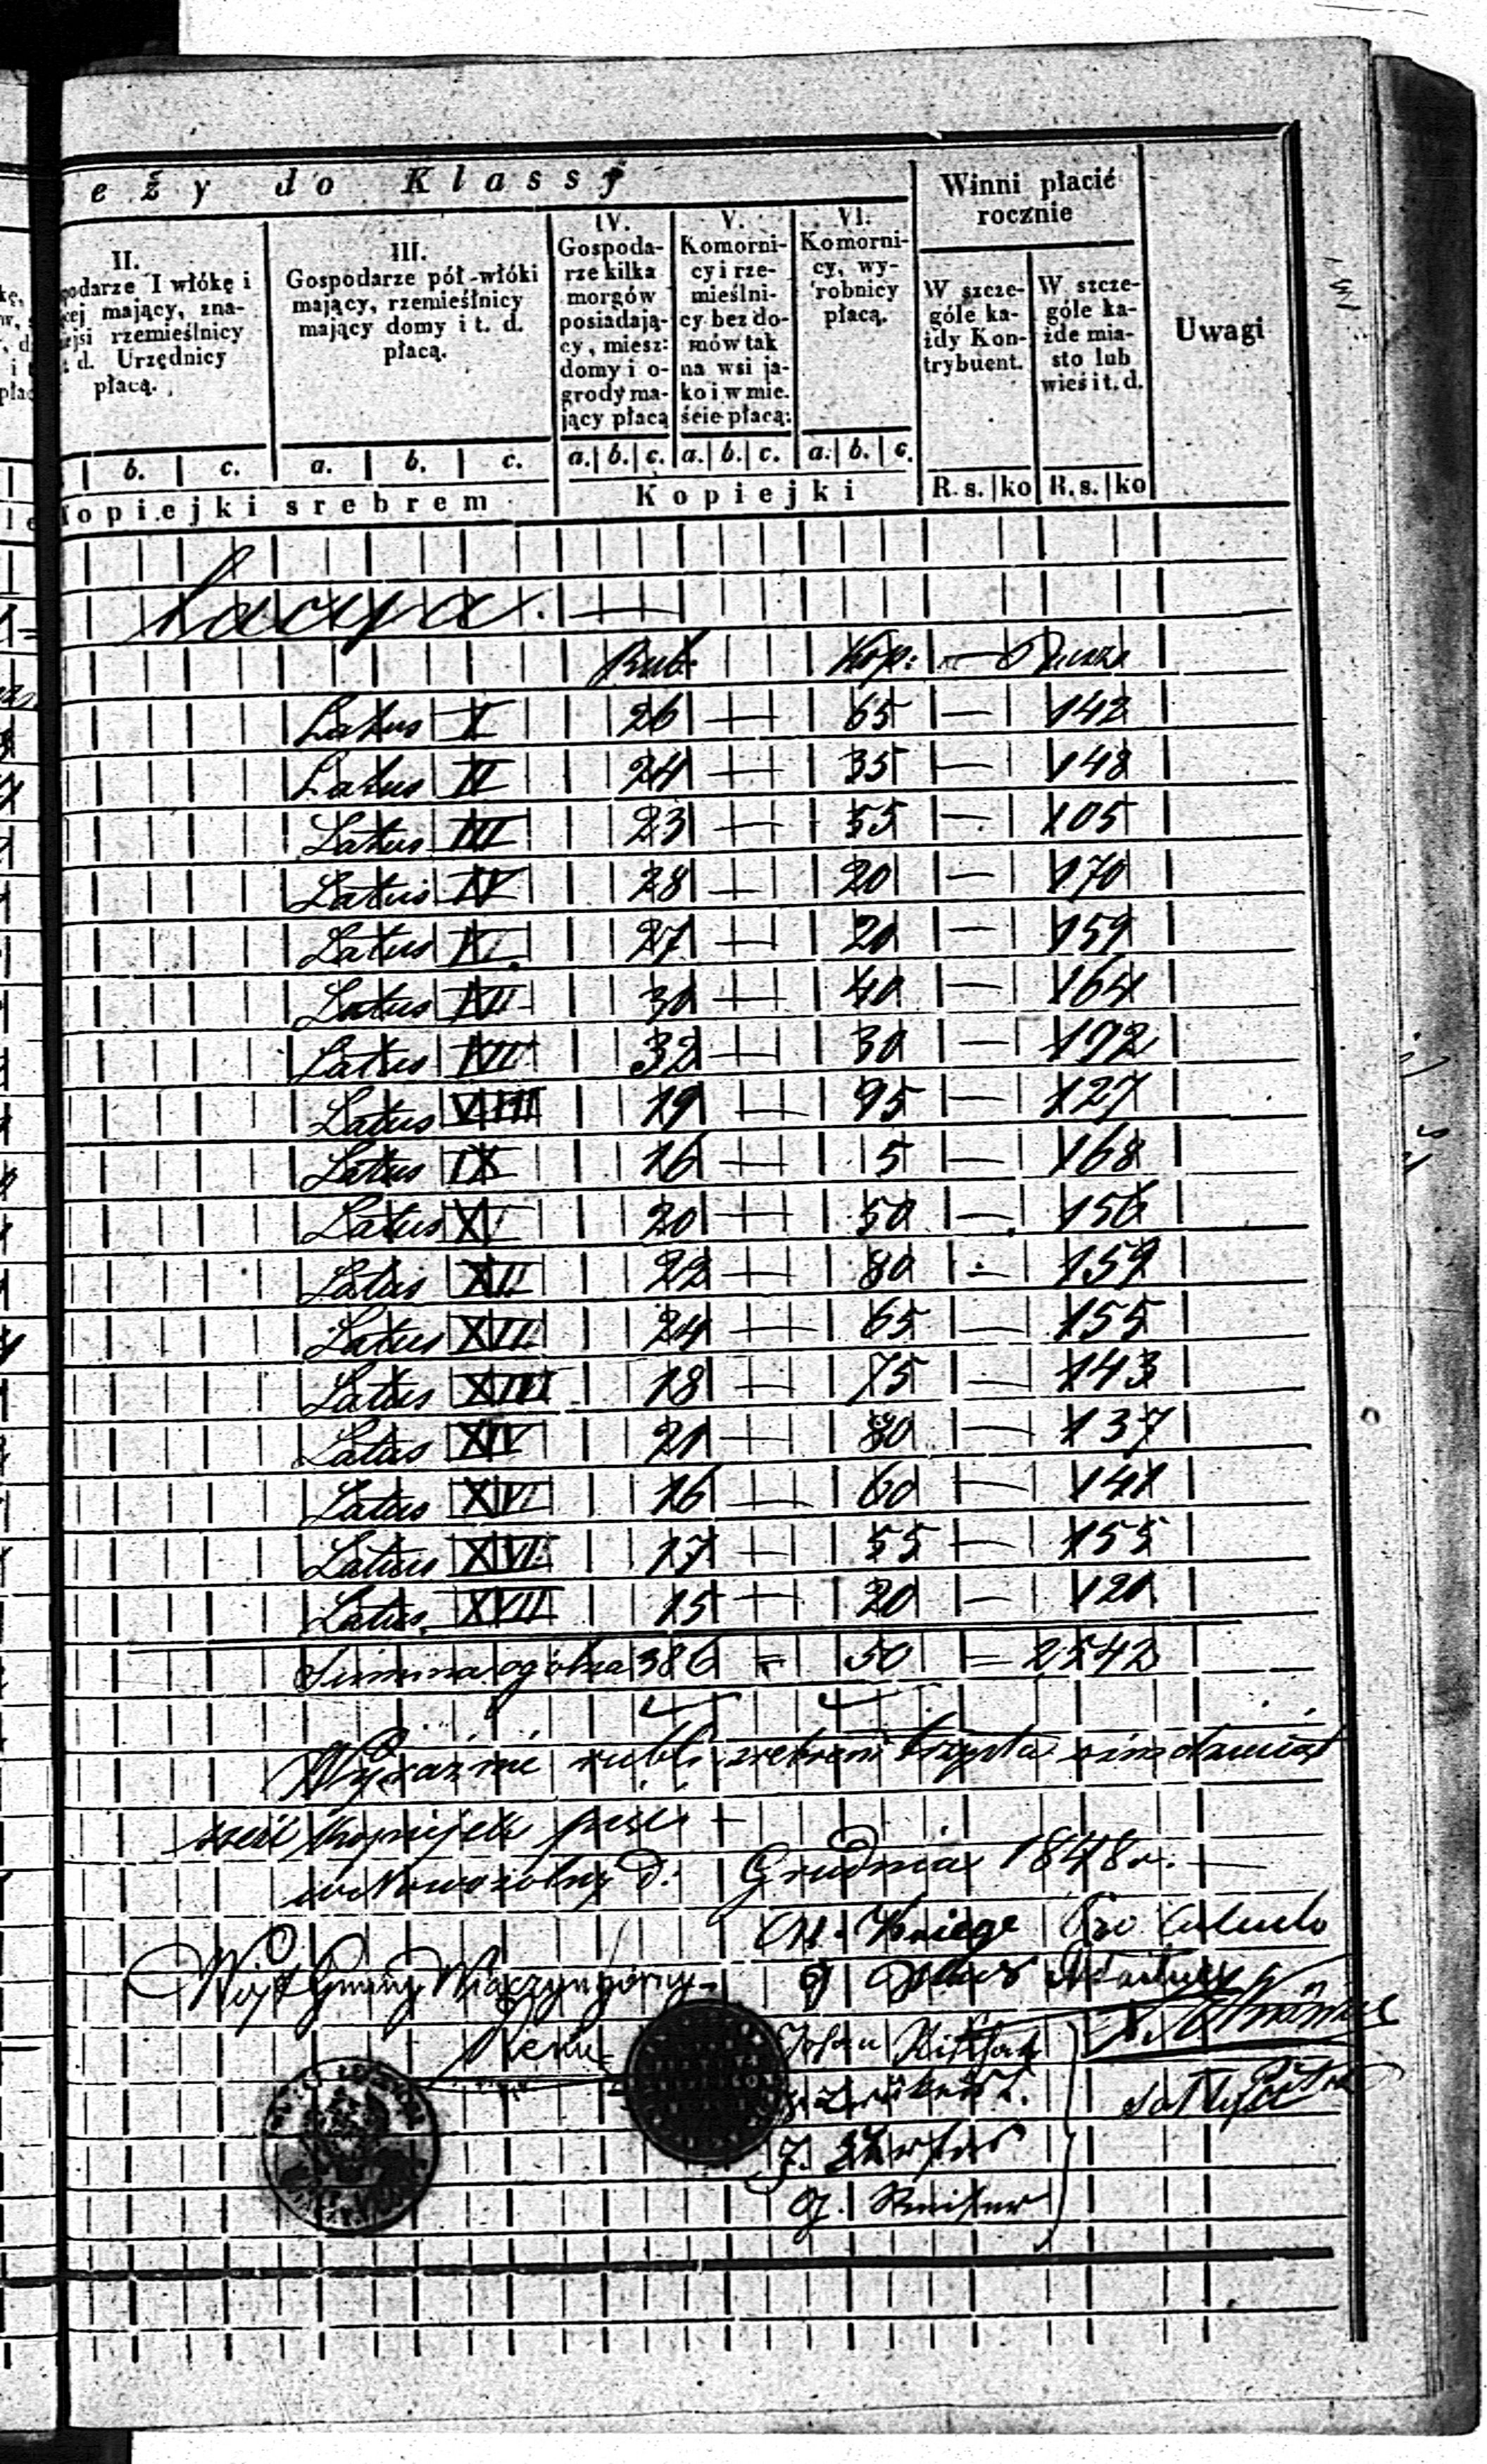 eży do Klassy
II.
podarze I włókę i
cej mający, zna-
ejsi rzemieślnicy
t. d. Urzędnicy
płacą.
III.
Gospodarze pół-włóki
mający, rzemieślnicy
mający domy i t. d.
płacą.
IV.
Gospoda-
rze kilka
morgów
posiadają-
cy, miesz:
domy i o-
grody ma-
jący płacą
V.
Komorni-
cy i rze-
mieślni-
cy bez do-
mów tak
na wsi ja-
ko i w mie-
ście płacą:
VI.
Komorni-
cy, wy-
robnicy
płacą.
Winni płacić
rocznie
W szcze-
góle ka-
żdy Kon-
trybuent.
W szcze-
góle ka-
żde mia-
sto lub
wieś i t. d.
Uwagi
b. c. a. b. c. a. b. c. a. b. c. a. b. c.
Kopiejki srebrem Kopiejki R. s. ko R. s. ko
Rub: Kop: — Dusze
Latus I 26 — 65 — 142
Latus II 24 — 35 — 148
Latus III 23 — 55 — 105
Latus IV 28 — 20 — 170
Latus V. 27 — 20 — 159
Latus VI 30 — 40 — 164
Latus VII 32 — 30 — 192
Latus VIII 19 — 95 — 127
Latus IX 16 — 5 — 168
Latus X 20 — 50 — 156
Latus XI 22 — 80 — 159
Latus XII 24 — 65 — 155
Latus XIII 18 — 75 — 143
Latus XIV 21 — 80 — 137
Latus XV 16 — 60 — 141
Latus XVI 17 — 55 — 155
Latus XVII 15 — 20 — 121
Summa ogólna 386 = 50 = 2542
Wyraźnie rubli srebrem trzysta ośmdziesiąt
sześć kopiejek
d. Grudnia 1848 r.
Wójt Gminy Wiączyń górny
Pro
Johan
J.
G.
Sołtysi